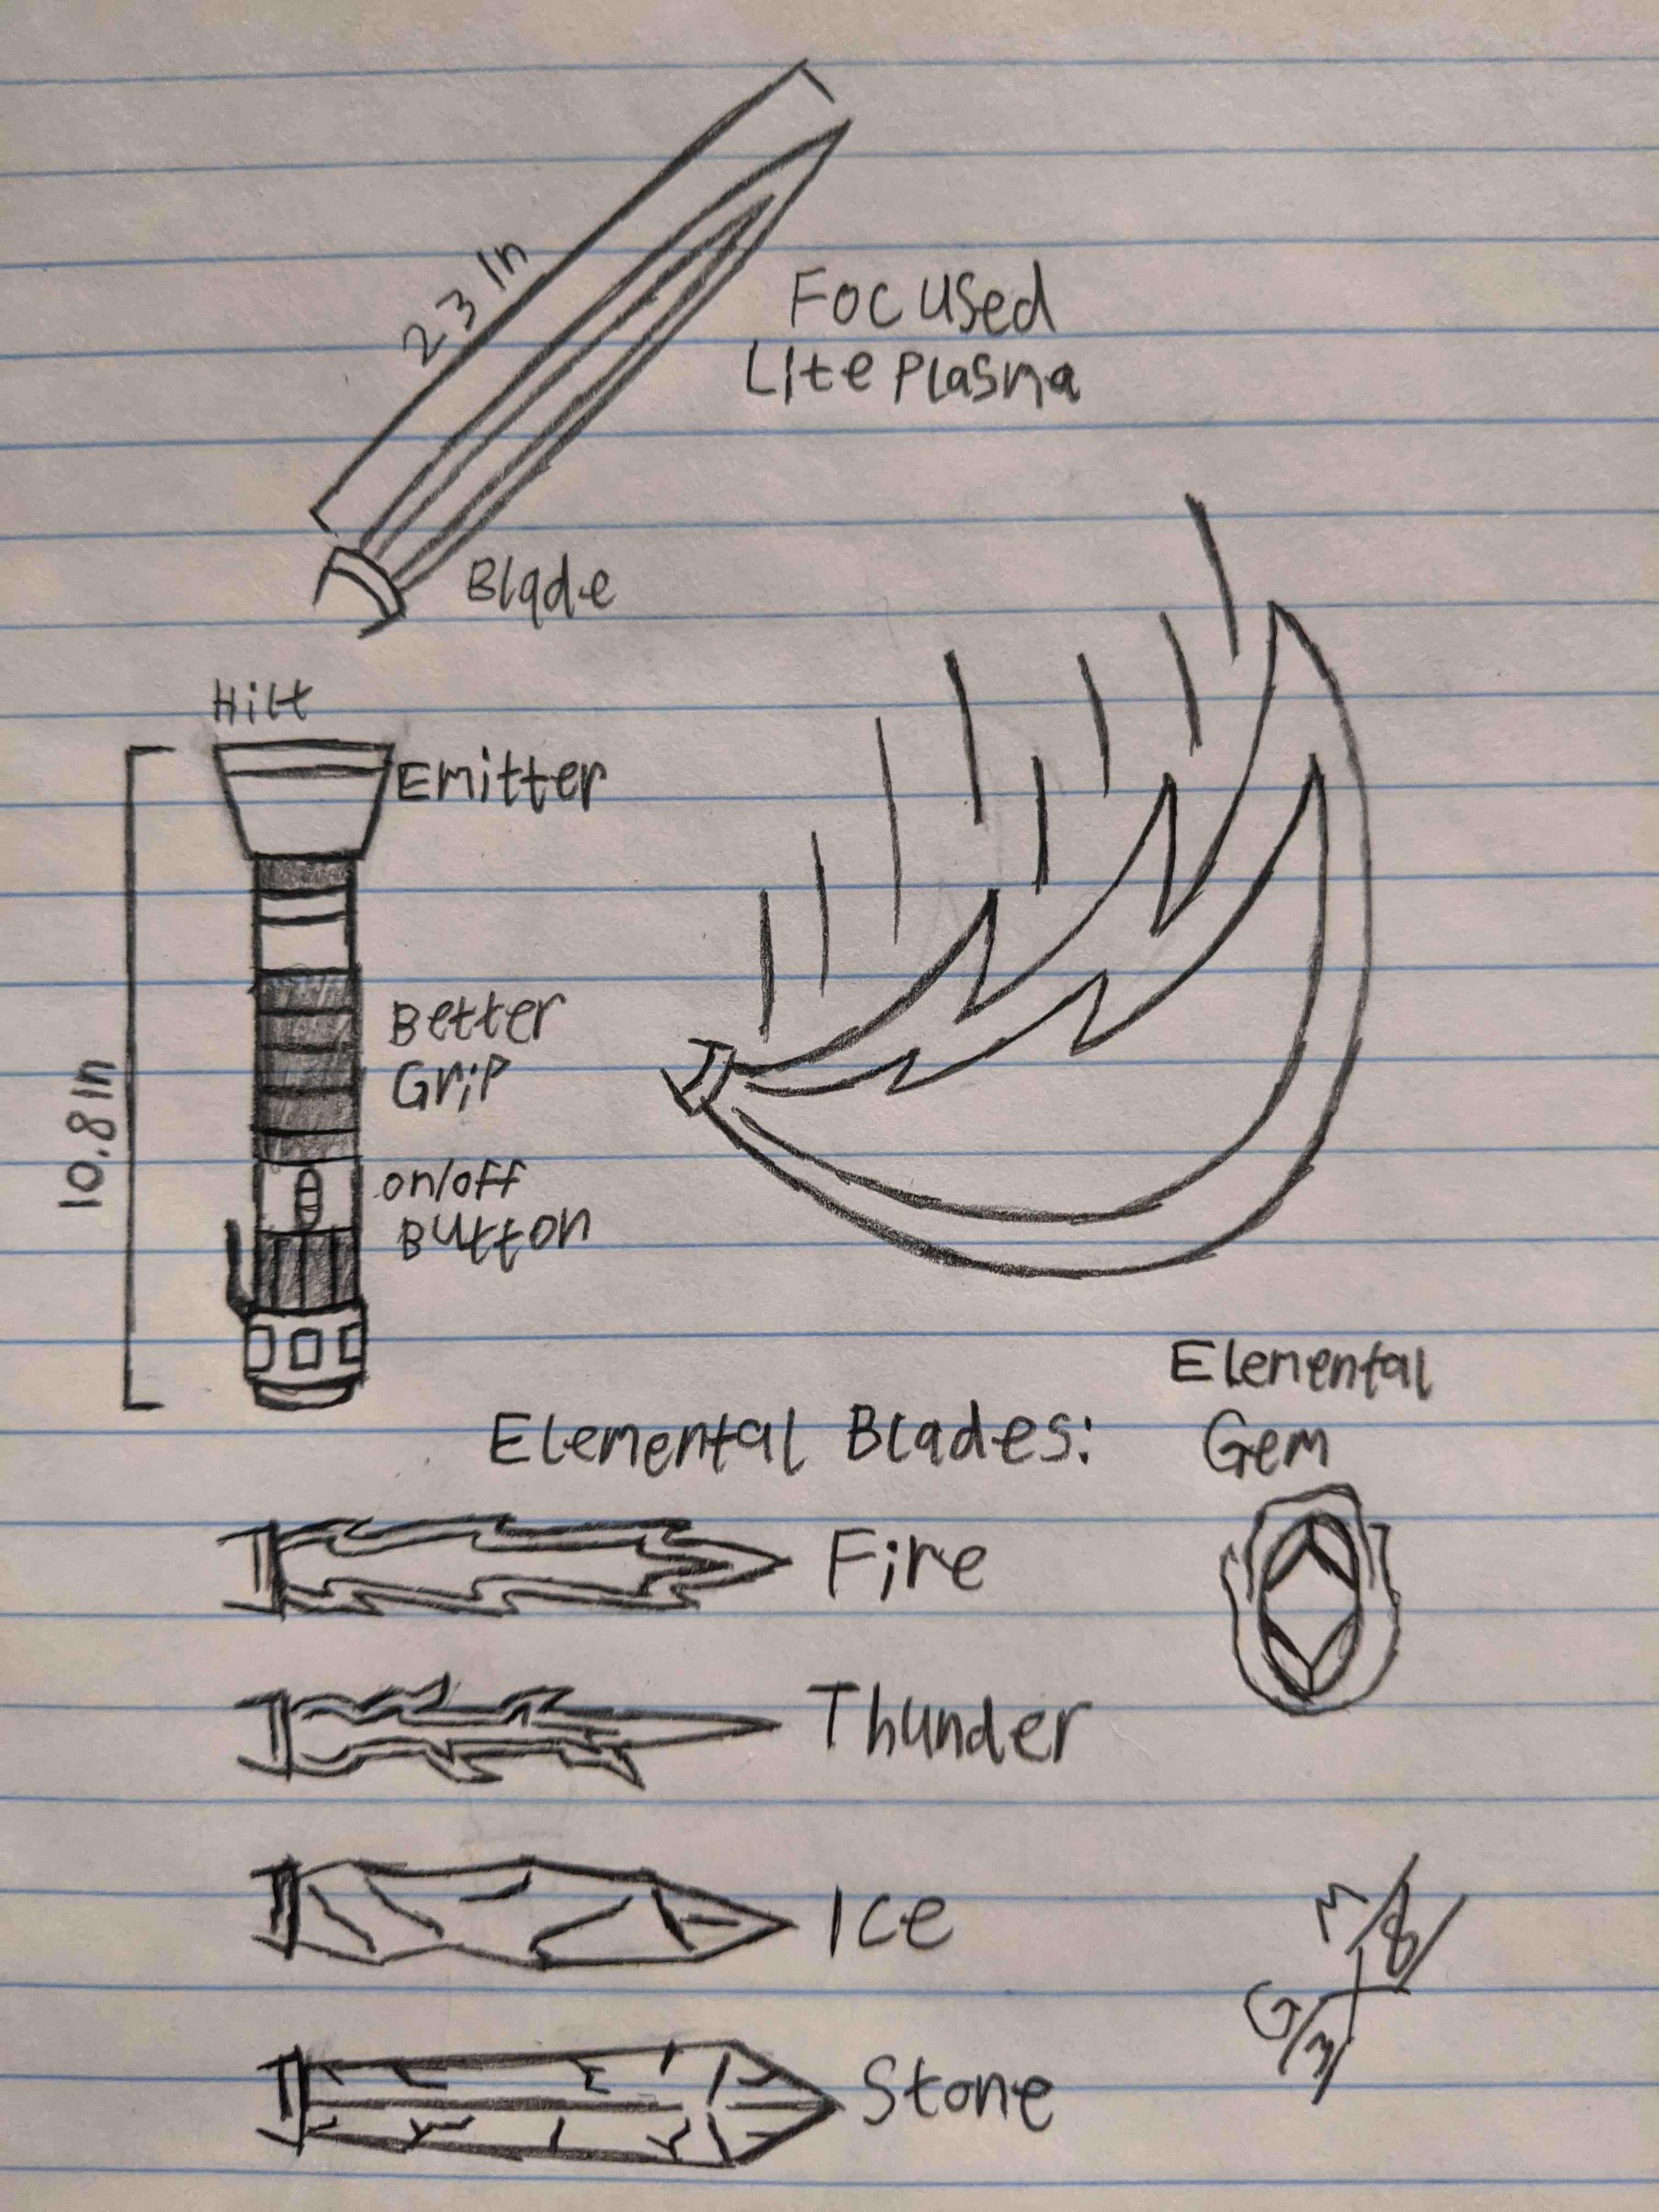 23 In
Focused
Lite Plasma
Blade
Hilt
Emitter
10.8 In
Better
Grip
on/off
Button
Elemental
Gem
Elemental Blades:
Fire
Thunder
Ice
Stone